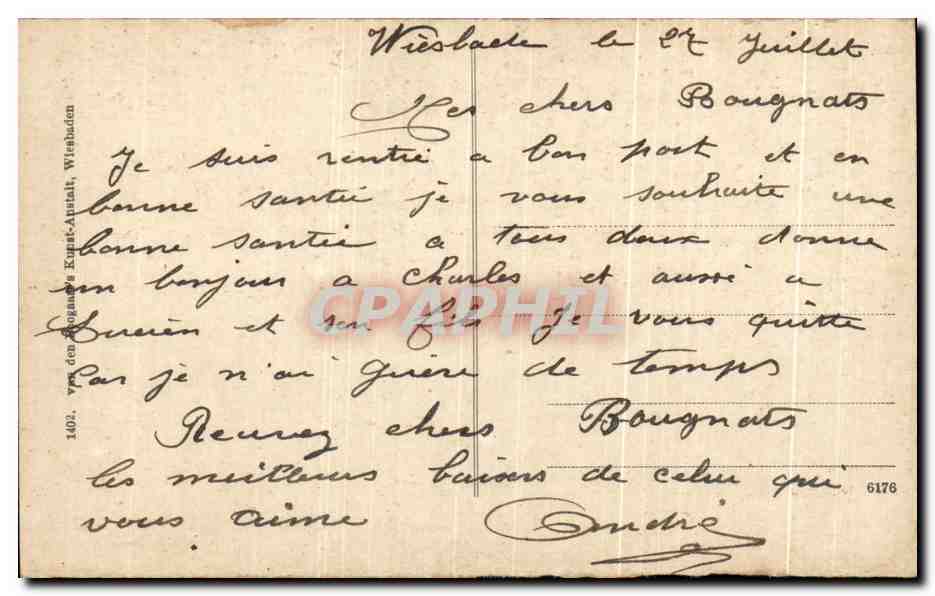 Wiesbade le 27 Juillet
Mes chers Bougnats
Je suis rentré a bon port et en
bonne santié je vous souhaite une
bonne santié a tous deux donne
un bonjour a Charles et aussi a
Lucien et son fils Je vous quitte
Car je n'ai guère de temps
Recevez chers Bougnats
les meilleurs baisers de celui qui
vous aime André
1402. van den Boogaart's Kunst-Anstalt, Wiesbaden
6176
CPAPHIL